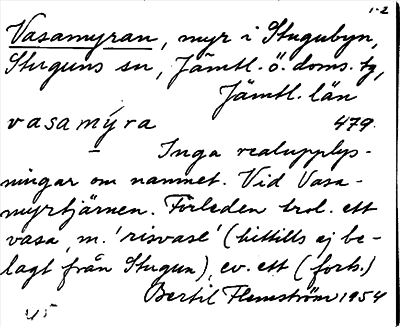 1-2
Vasamyran, myr i Stugubyn,
Stuguns sn, Jämtl. ö. doms. tg,
Jämtl. län
vasamý̱ra 479.
Inga realupplys-
ningar om namnet. Vid Vasa-
myrtjärnen. Förleden trol. ett
vasa, m. 'risvase' (hittills ej be-
lagt från Stugun), ev. ett (forts.)
Bertil Flemström 1954